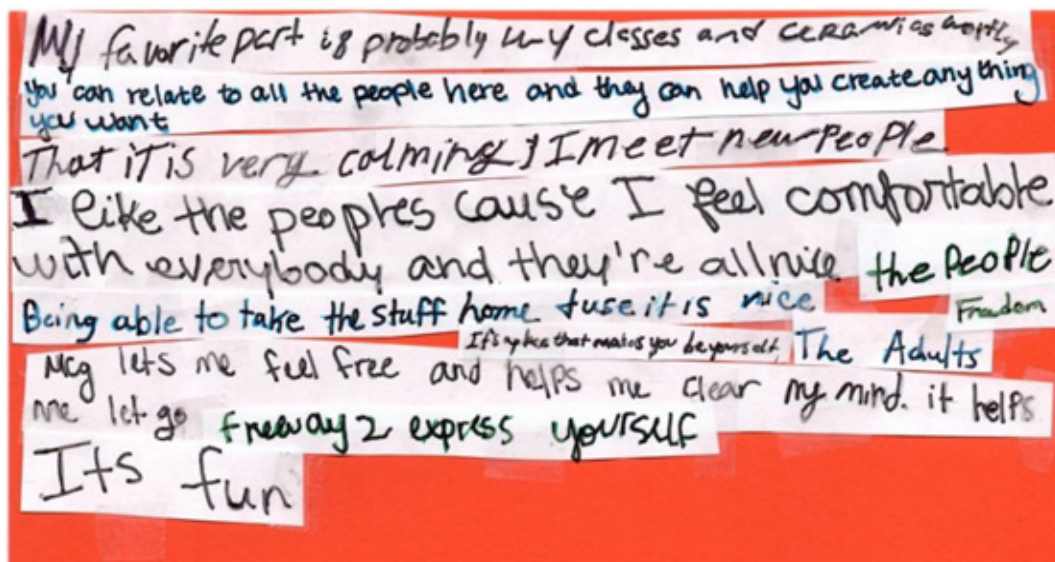 My favorite part is probably my classes and ceramics mostly
you can relate to all the people here and they can help you create anything
you want
That iT is very calming & I meet new People
I like the peoples cause I feel comfortable
with everybody and they're all nice
the People
Being able to take the stuff home & use it is nice
Freedom
It's a place that makes you be yourself
The Adults
Mcg lets me feel free and helps me clear my mind. it helps
me let go
freeway 2 express yourself
Its fun